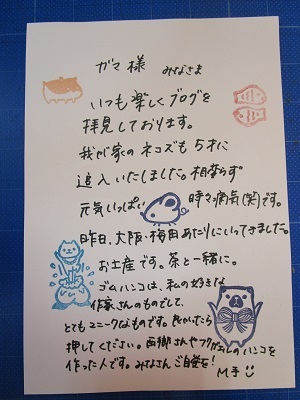 ガマ様 みなさま
いつも楽しくブログを
拝見しております。
我が家のネコズも5才に
突入いたしました。相変らず
元気いっぱい 時々病気(笑)です。
昨日、大阪・梅田あたりにいってきました。
お土産です。茶と一緒に。
ゴムハンコは、私の好きな
作家さんのものでして、
とてもユニークなものです。
押してください。西郷さんやフグ のハンコを
作った人です。みなさん ご自愛を!
M子